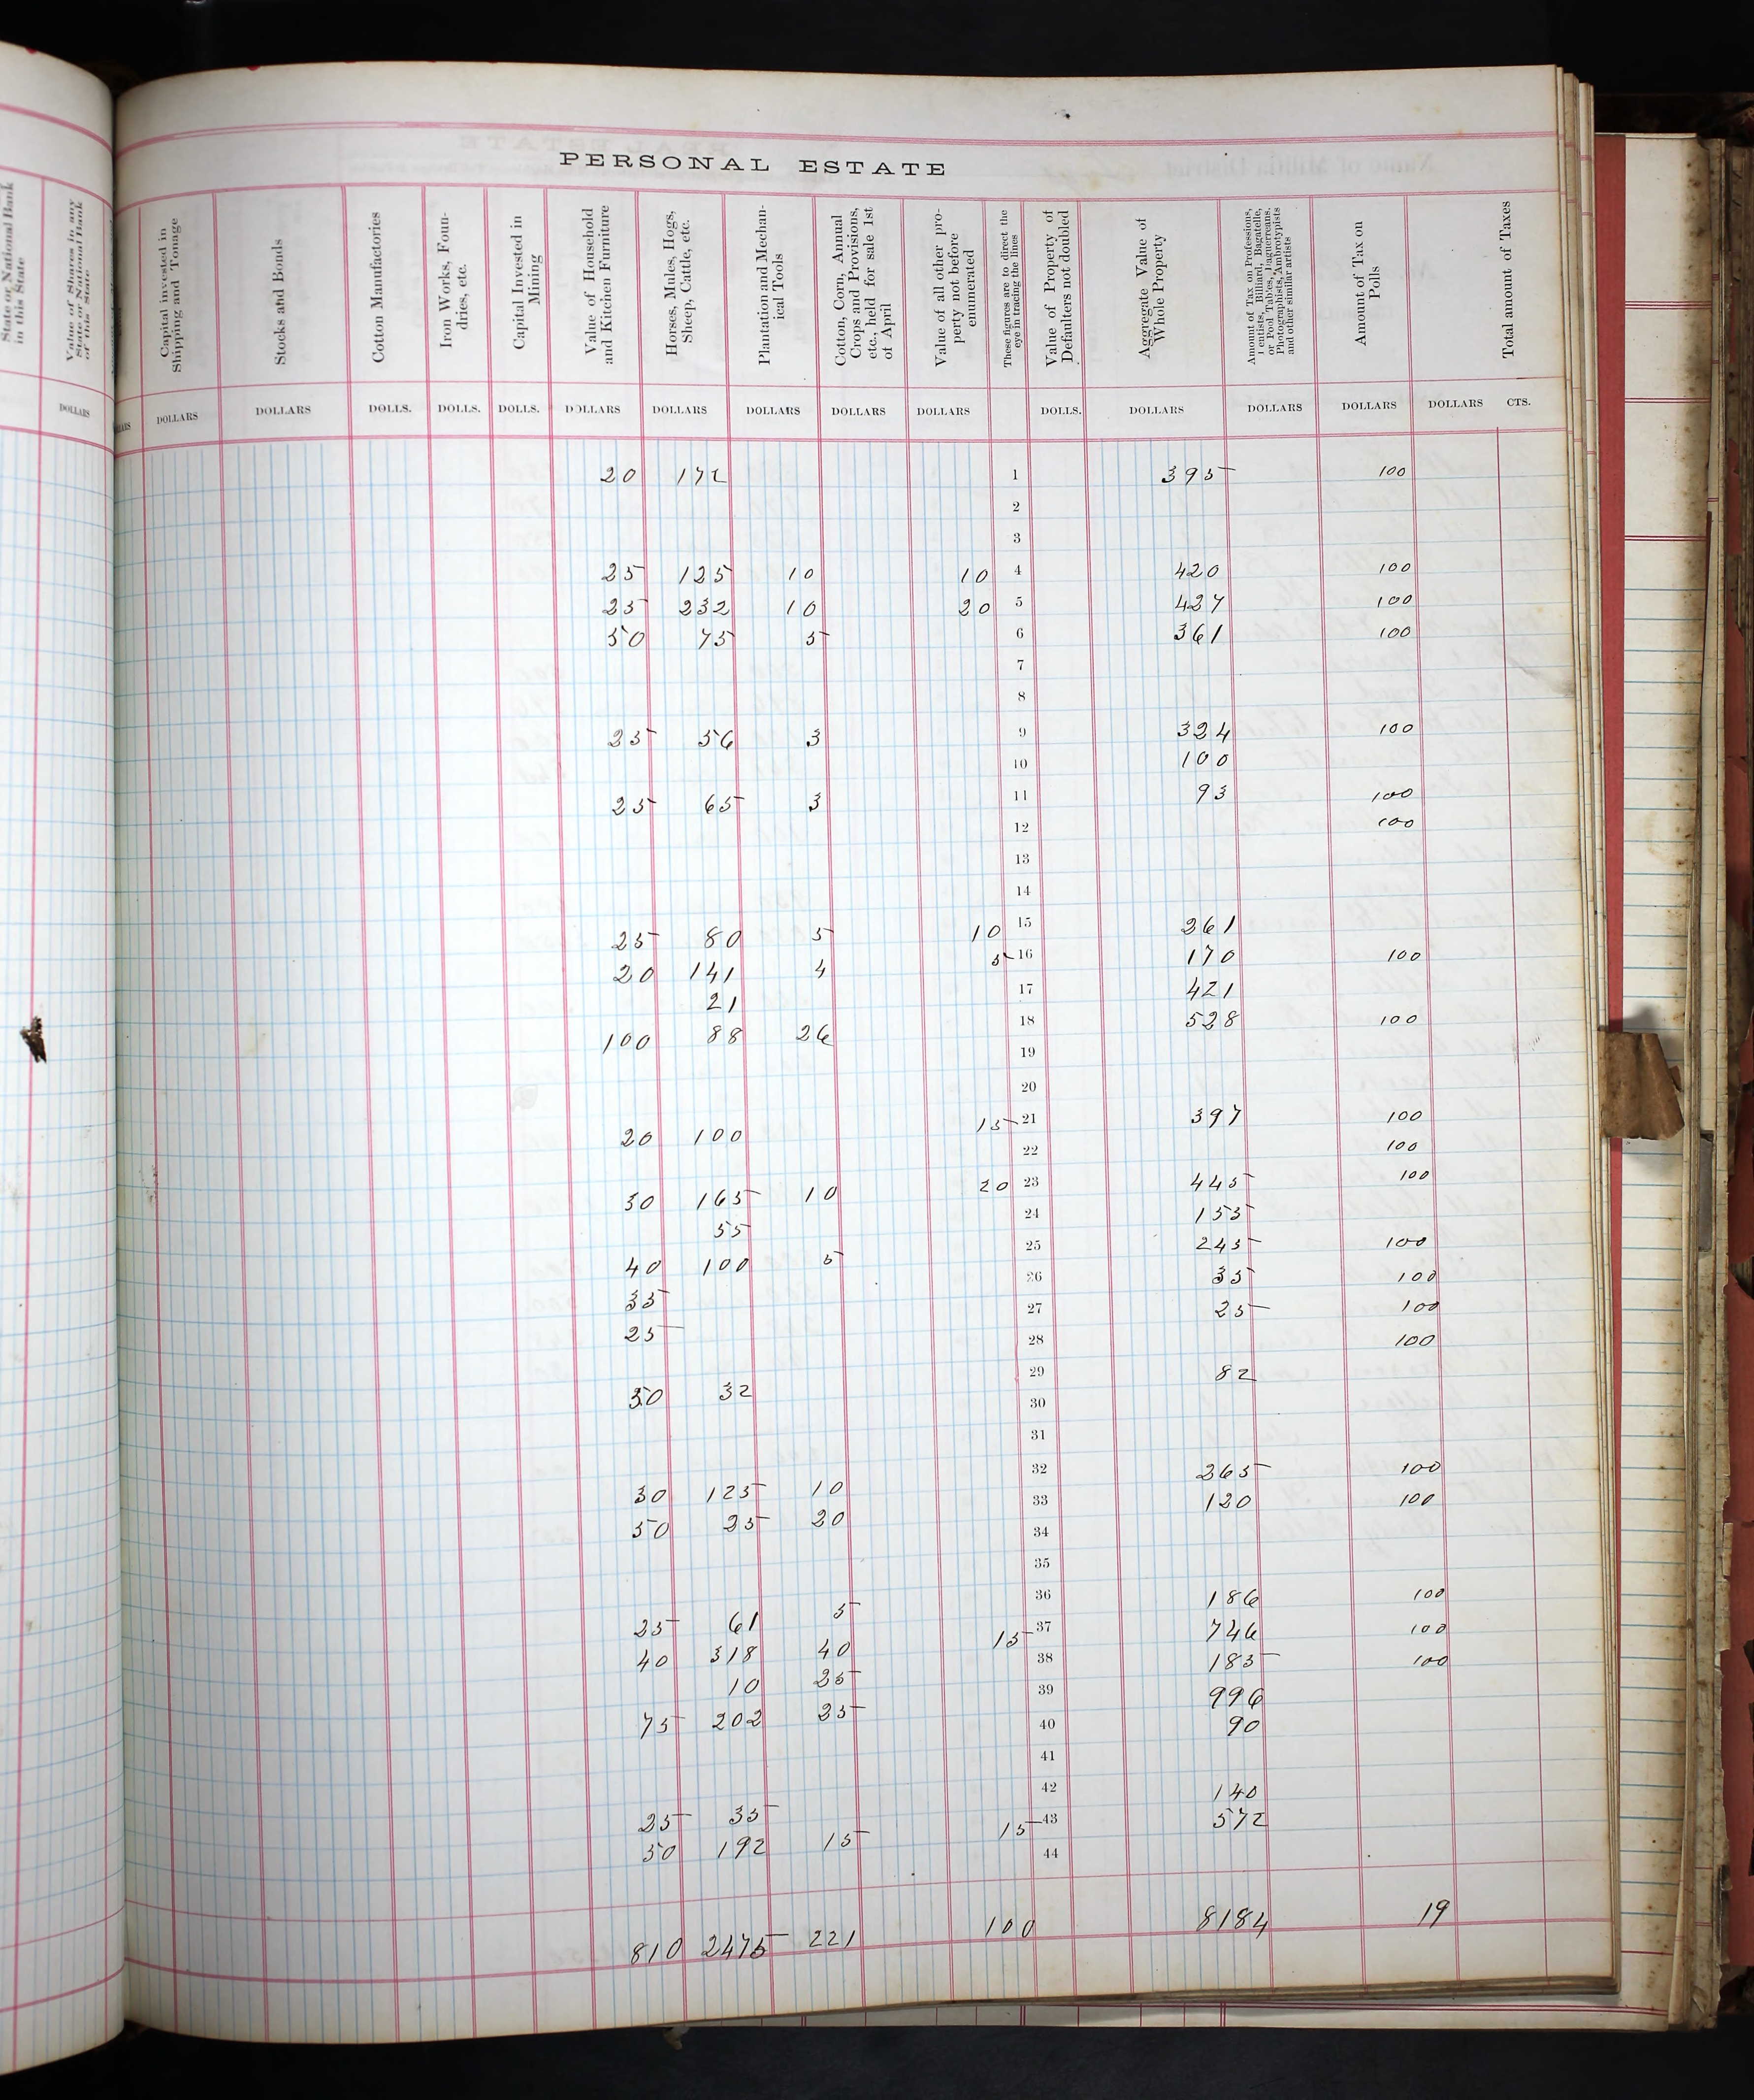 PERSONAL ESTATE
State or National Bank in this State
Value of Shares in any State or National Bank of this State
Capital invested in Shipping and Tonage
Stocks and Bonds
Cotton Manufactories
Iron Works, Foundries, etc.
Capital Invested in Mining
Value of Household and Kitchen Furniture
Horses, Mules, Hogs, Sheep, Cattle, etc.
Plantation and Mechanical Tools
Cotton, Corn, Annual Crops and Provisions, etc., held for sale 1st of April
Value of all other property not before enumerated
These figures are to direct the eye in tracing the lines
Value of Property of Defaulters not doubled
Aggregate Value of Whole Property
Amount of Tax on Professions, Dentists, Billiard, Bagatelle, or Pool Tables, Daguerreans, Photographists, Ambrotypists and other similar artists
Amount of Tax on Polls
Total amount of Taxes
DOLLARS DOLLARS DOLLARS DOLLS. DOLLS. DOLLS. DOLLARS DOLLARS DOLLARS DOLLARS DOLLARS DOLLS. DOLLARS DOLLARS DOLLARS DOLLARS CTS.
20 172 1 395 100
2
3
25 125 10 10 4 420 100
25 232 10 20 5 427 100
50 75 5 6 361 100
7
8
25 56 3 9 324 100
10 100
25 65 3 11 93 100
12 100
13
14
25 80 5 10 15 261
20 141 4 5 16 170 100
21 17 421
100 88 26 18 528 100
19
20
20 100 15 21 397 100
22 100
50 165 10 20 23 445 100
55 24 155
40 100 5 25 245 100
35 26 35 100
25 27 25 100
28 100
50 32 29 82
30
31
30 125 10 32 265 100
50 25 20 33 120 100
34
35
25 61 5 36 186 100
40 318 40 15 37 746 100
10 25 38 185 100
75 202 25 39 996
40 90
41
25 35 42 140
50 192 15 15 43 572
44
810 2475 221 100 8184 19